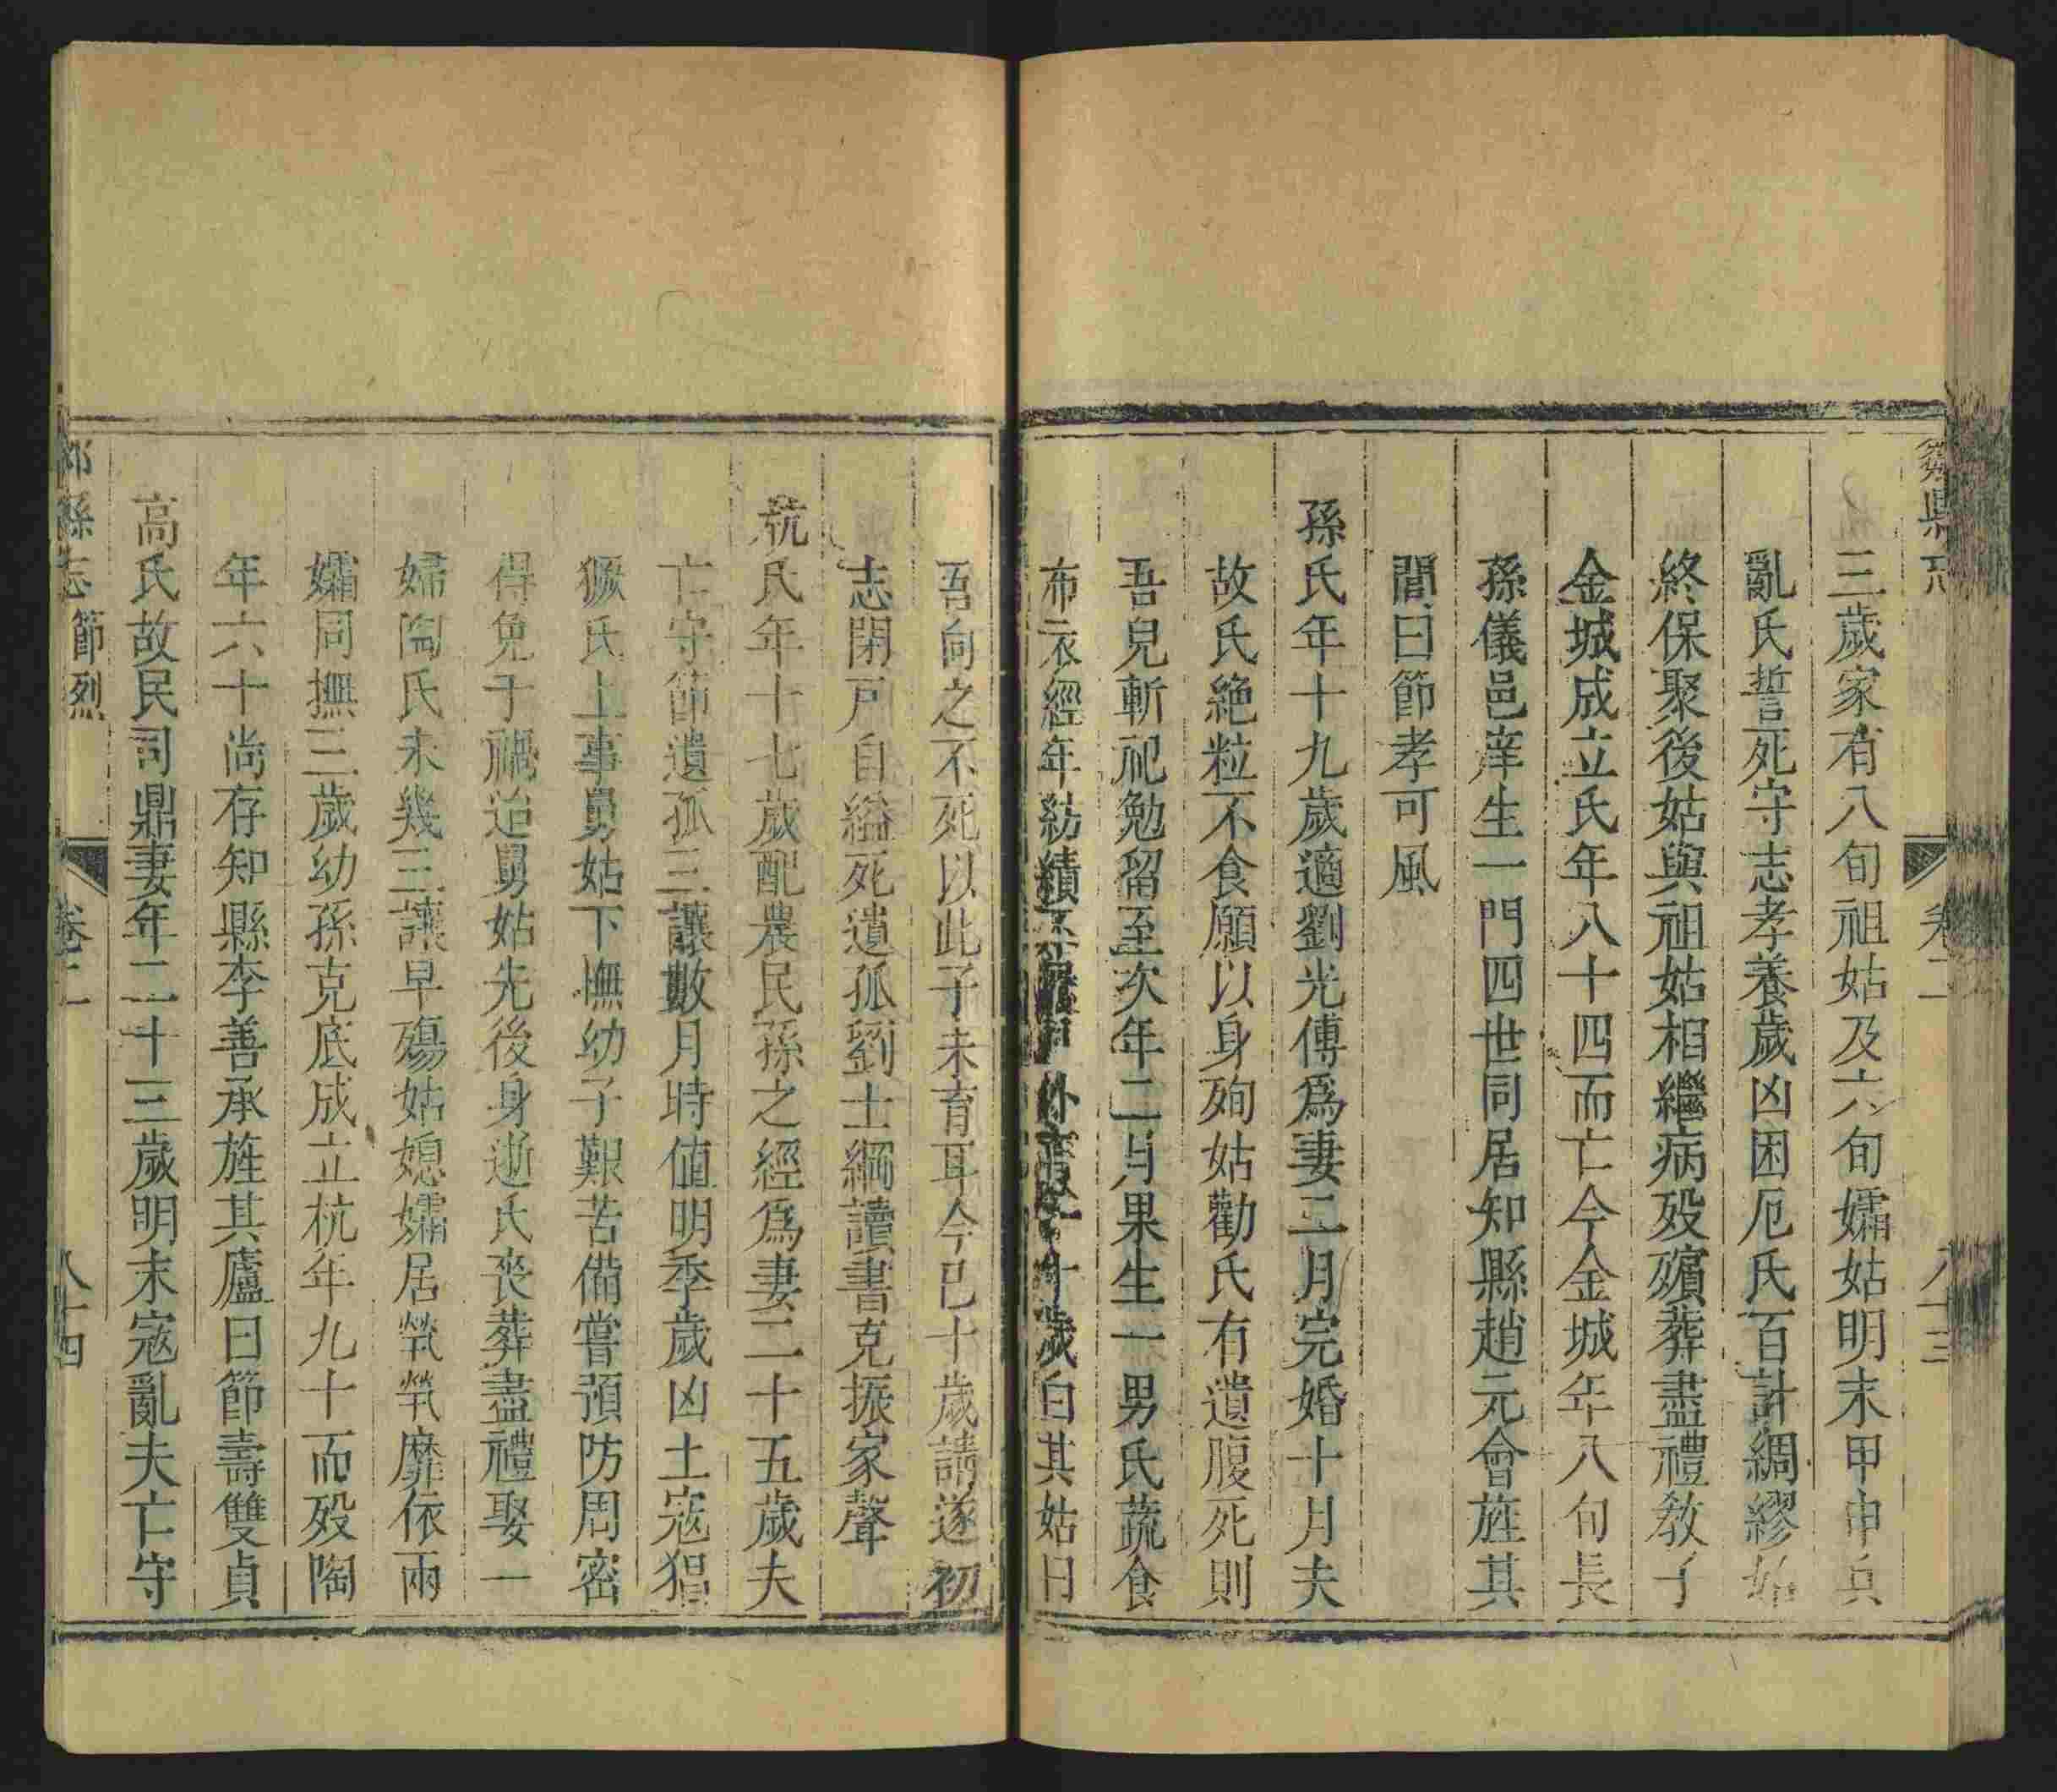 三歲家有八旬祖姑及六旬孀姑明末甲申兵
亂氏誓死守志孝養歲凶困厄氏百計綢繆始
終保聚後姑與祖姑相繼病殁殯葬盡禮教子
金城成立氏年八十四而亡今金城年八旬長
孫儀邑庠生一門四世同居知縣趙元會旌其
閭曰節孝可風
孫氏年十九歲適劉光傅爲妻二月完婚十月夫
故氏絶粒不食願以身殉姑勸氏有遺腹死則
吾兒斬祀勉留至次年二月果生一男氏蔬食
布衣經年紡績不十歲白其姑曰
吾向之不死以此子未育耳今已十歲請遂初
志閉戸自縊死遺孤劉士綱讀書克振家聲
杭氏年十七歲配農民孫之經爲妻二十五歲夫
亡守節遺孤三讓數月時値明季歲凶土寇猖
獗氏上事舅姑下撫幼子艱苦備嘗預防周密
得免于禍迨舅姑先後身逝氏喪葬盡禮娶一
婦陶氏未幾三讓早殤姑媳孀居煢煢靡依兩
孀同撫三歲幼孫克底成立杭年九十而殁陶
年六十尚存知縣李善承旌其廬曰節壽雙貞
高氏故民司鼎妻年二十三歲明末寇亂夫亡守
縣志 節烈 卷二 八十四